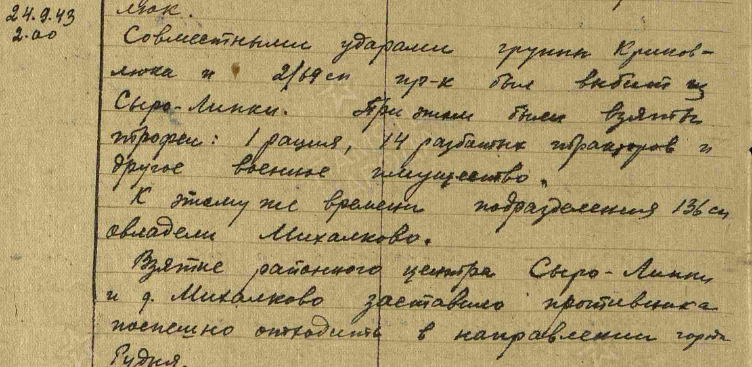 24.9.43
2.00
люк.
Совместными ударами группы Криков-
люка и 2/69сп пр-к был выбит из
Сыро-Липки. При этом были взяты
трофеи: 1 рация, 14 разбитых тракторов и
другое военное имущество.
К этому же времени подразделения 136 сп
овладели Михалково.
Взятие районного центра Сыро-Липки
и д. Михалково заставило противника
поспешно отходить в направлении города
Рудня.